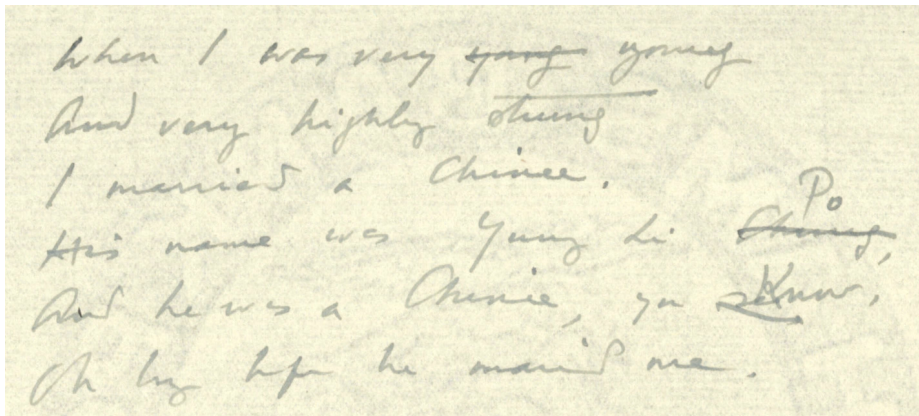 When I was very young young
And very highly strung
I married a Chinee.
His name was Yung Li Chung, Po
And he was a Chinee, you know,
Oh he married me.